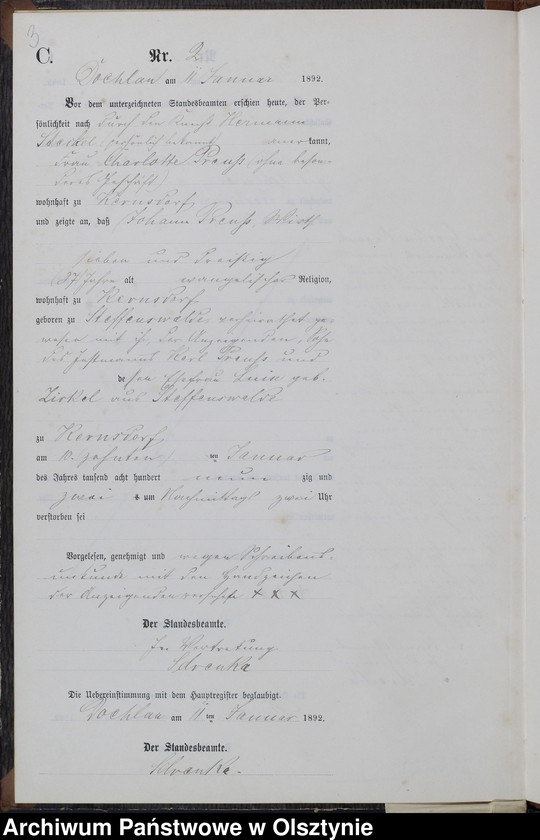 3
C.
Nr. 2
Döhlau am 11 Januar 1892.
Vor dem unterzeichneten Standesbeamten erschien heute, der Per-
sönlichkeit nach durch den Hermann
persönlich bekannt anerkannt,
Frau Charlotte Preuß, ohne beson-
deres Geschäft
wohnhaft zu Kernsdorf
und zeigte an, daß Johann Preuß Wirth
sieben und dreißig
(37) Jahre alt evangelischer Religion,
wohnhaft zu Kernsdorf
geboren zu Steffenswalde verheirathet ge-
wesen mit ihr, der Anzeigenden, Sohn
des Karl Preuß und
dessen Ehefrau geb.
Zirkel aus Steffenswalde
zu Kernsdorf
am 10. (zehnten) ten Januar
des Jahres tausend acht hundert neun zig und
zwei um Nachmittags zwei Uhr
verstorben sei
Vorgelesen, genehmigt und wegen Schreibens-
unkunde mit den Handzeichen
der Anzeigenden versehen + + +
Der Standesbeamte.
In Vertretung
Die Uebereinstimmung mit dem Hauptregister beglaubigt.
Döhlau am 11 ten Januar 1892.
Der Standesbeamte.
Archiwum Państwowe w Olsztynie